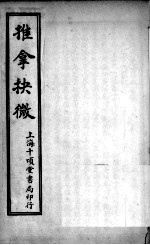 推拿抉微
上海千頃堂書局印行